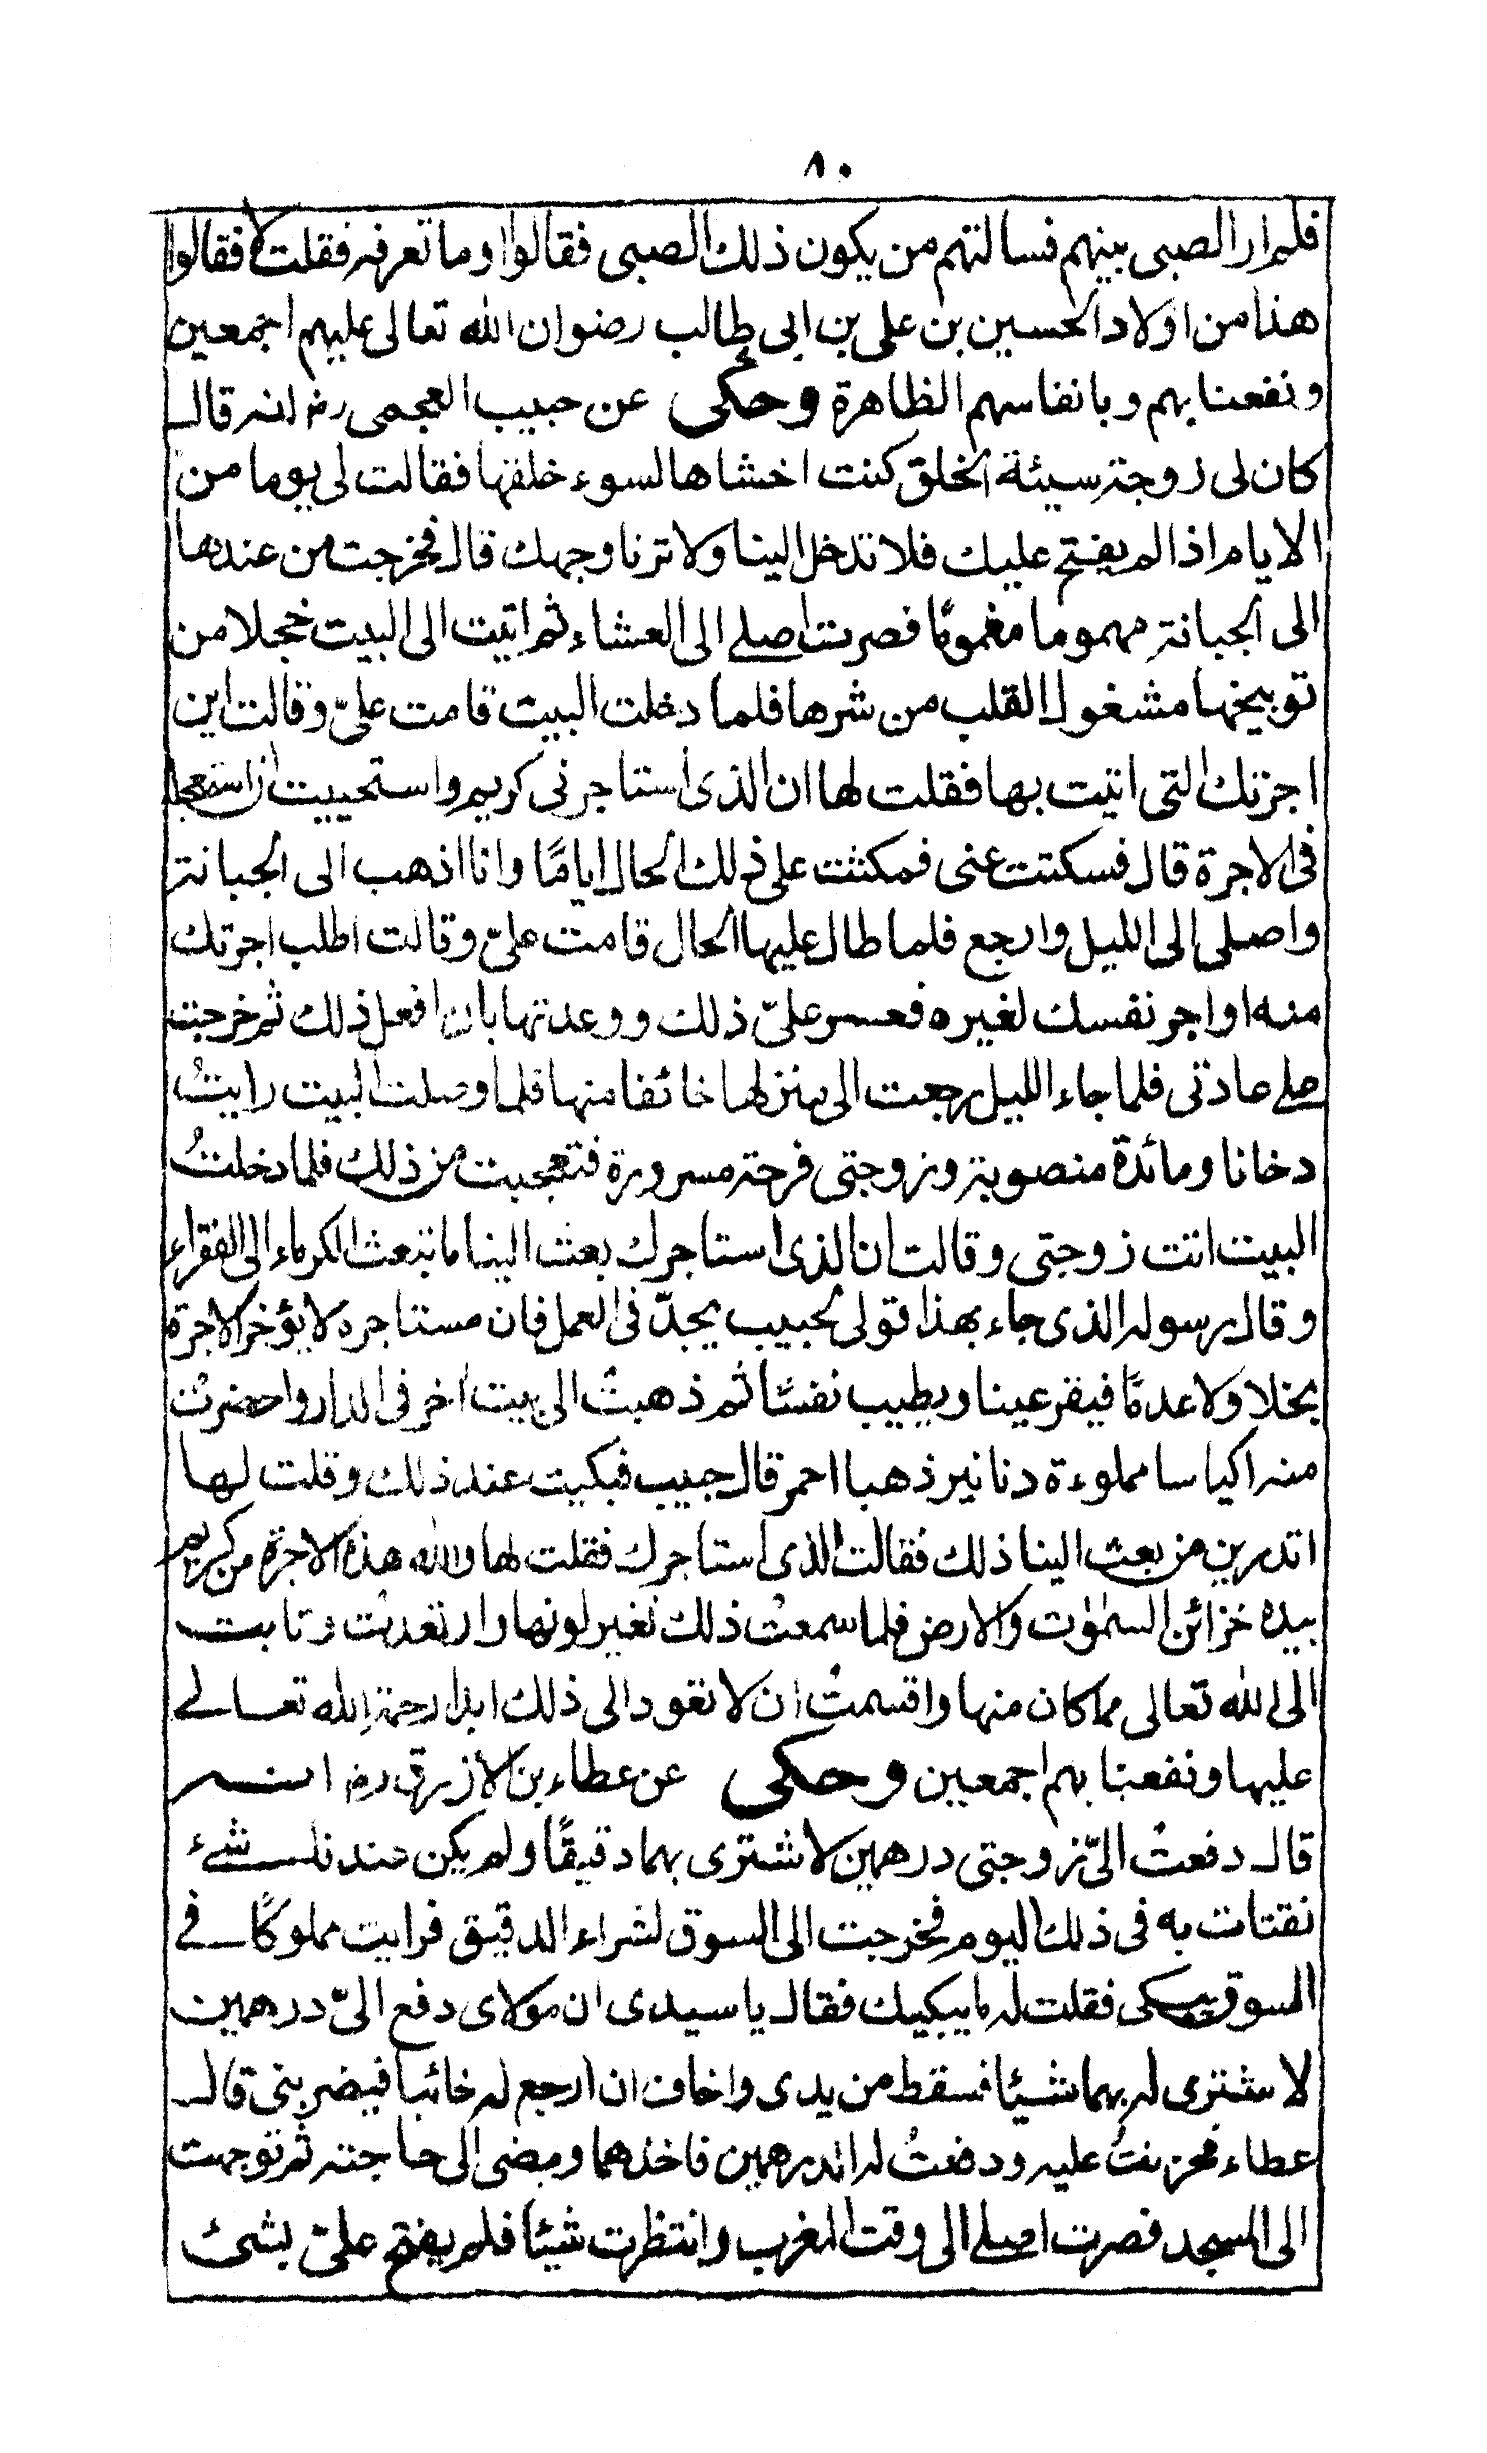 ٨٠
فلم ار الصبى بينهم فسالتهم من يكون ذلك الصبى فقالوا وما تعرفه فقلت لا فقالوا
هذا من اولاد الحسين بن على بن ابى طالب رضوان الله تعالى عليهم اجمعين
ونفعنا بهم وبانفاسهم الظاهرة وحكى عن حبيب العجمى رض انه قال
كان لى زوجة سيئة الخلق كنت اخشاها لسوء خلقها فقالت لى يوما من
الايام اذا لم يفتح عليك فلا تدخل الينا ولا ترنا وجهك قال فخرجت من عندها
الى الجبانة مهموما مغمومًا فصرت اصلى الى العشاء ثم اتيت الى البيت خجلا من
توبيخها مشغول القلب من شرها فلما دخلت البيت قامت علىّ وقالت اين
اجرتك التى اتيت بها فقلت لها ان الذى استاجرنى كريم واستحييت ان استعجله
فى الاجرة قال فسكتت عنى فمكثت على ذلك الحال ايامًا وانا اذهب الى الجبانة
واصلى الى الليل وارجع فلما طال عليها الحال قامت علىّ وقالت اطلب اجرتك
منه او اجر نفسك لغيره فعسر علىّ ذلك ووعدتها بان افعل ذلك ثم خرجت
على عادتى فلما جاء الليل رجعت الى منزلها خائفا منها فلما وصلت البيت رايتُ
دخانا ومائدة منصوبة وزوجتى فرحة مسرورة فتعجبت من ذلك فلما دخلتُ
البيت اتت زوجتى وقالت ان الذى استاجرك بعث الينا ما تبعث الكرماء الى الفقراء
وقال رسوله الذى جاء بهذا قولى لحبيب يجدّ فى العمل فان مستاجره لا يؤخر الاجرة
بخلا ولا عدمًا فيقر عينا ويطيب نفسًا ثم ذهبتْ الى بيت اخر فى الدار واحضرتْ
منه اكياسا مملوءة دنانير ذهبا احمر قال حبيب فبكيت عند ذلك وقلت لها
اتدرين من بعث الينا ذلك فقالت الذى استاجرك فقلت لها والله هذه الاجرة من كريم
بيده خزائن السمٰوٰت والارض فلما سمعتْ ذلك تغير لونها وارتعدتْ وتابت
الى الله تعالى مما كان منها واقسمتْ ان لا تعود الى ذلك ابدا رحمة الله تعالى
عليها ونفعنا بهم اجمعين وحكى عن عطاء بن الازرق رض انه
قال دفعتْ الىّ زوجتى درهمين لاشترى بهما دقيقًا ولم يكن عندنا شئ
نقتات به فى ذلك اليوم فخرجت الى السوق لشراء الدقيق فرايت مملوكًا فى
السوق يبكى فقلت له ما يبكيك فقال يا سيدى ان مولاى دفع الىّ درهمين
لاشترى له بهما شيئا فسقط من يدى واخاف ان ارجع له خائبا فيضربنى قال
عطاء فحزنتُ عليه ودفعتُ له الدرهمين فاخذهما ومضى الى حاجته ثم توجهت
الى المسجد فصرت اصلى الى وقت المغرب وانتظرت شيئا فلم يفتح علىّ بشئ